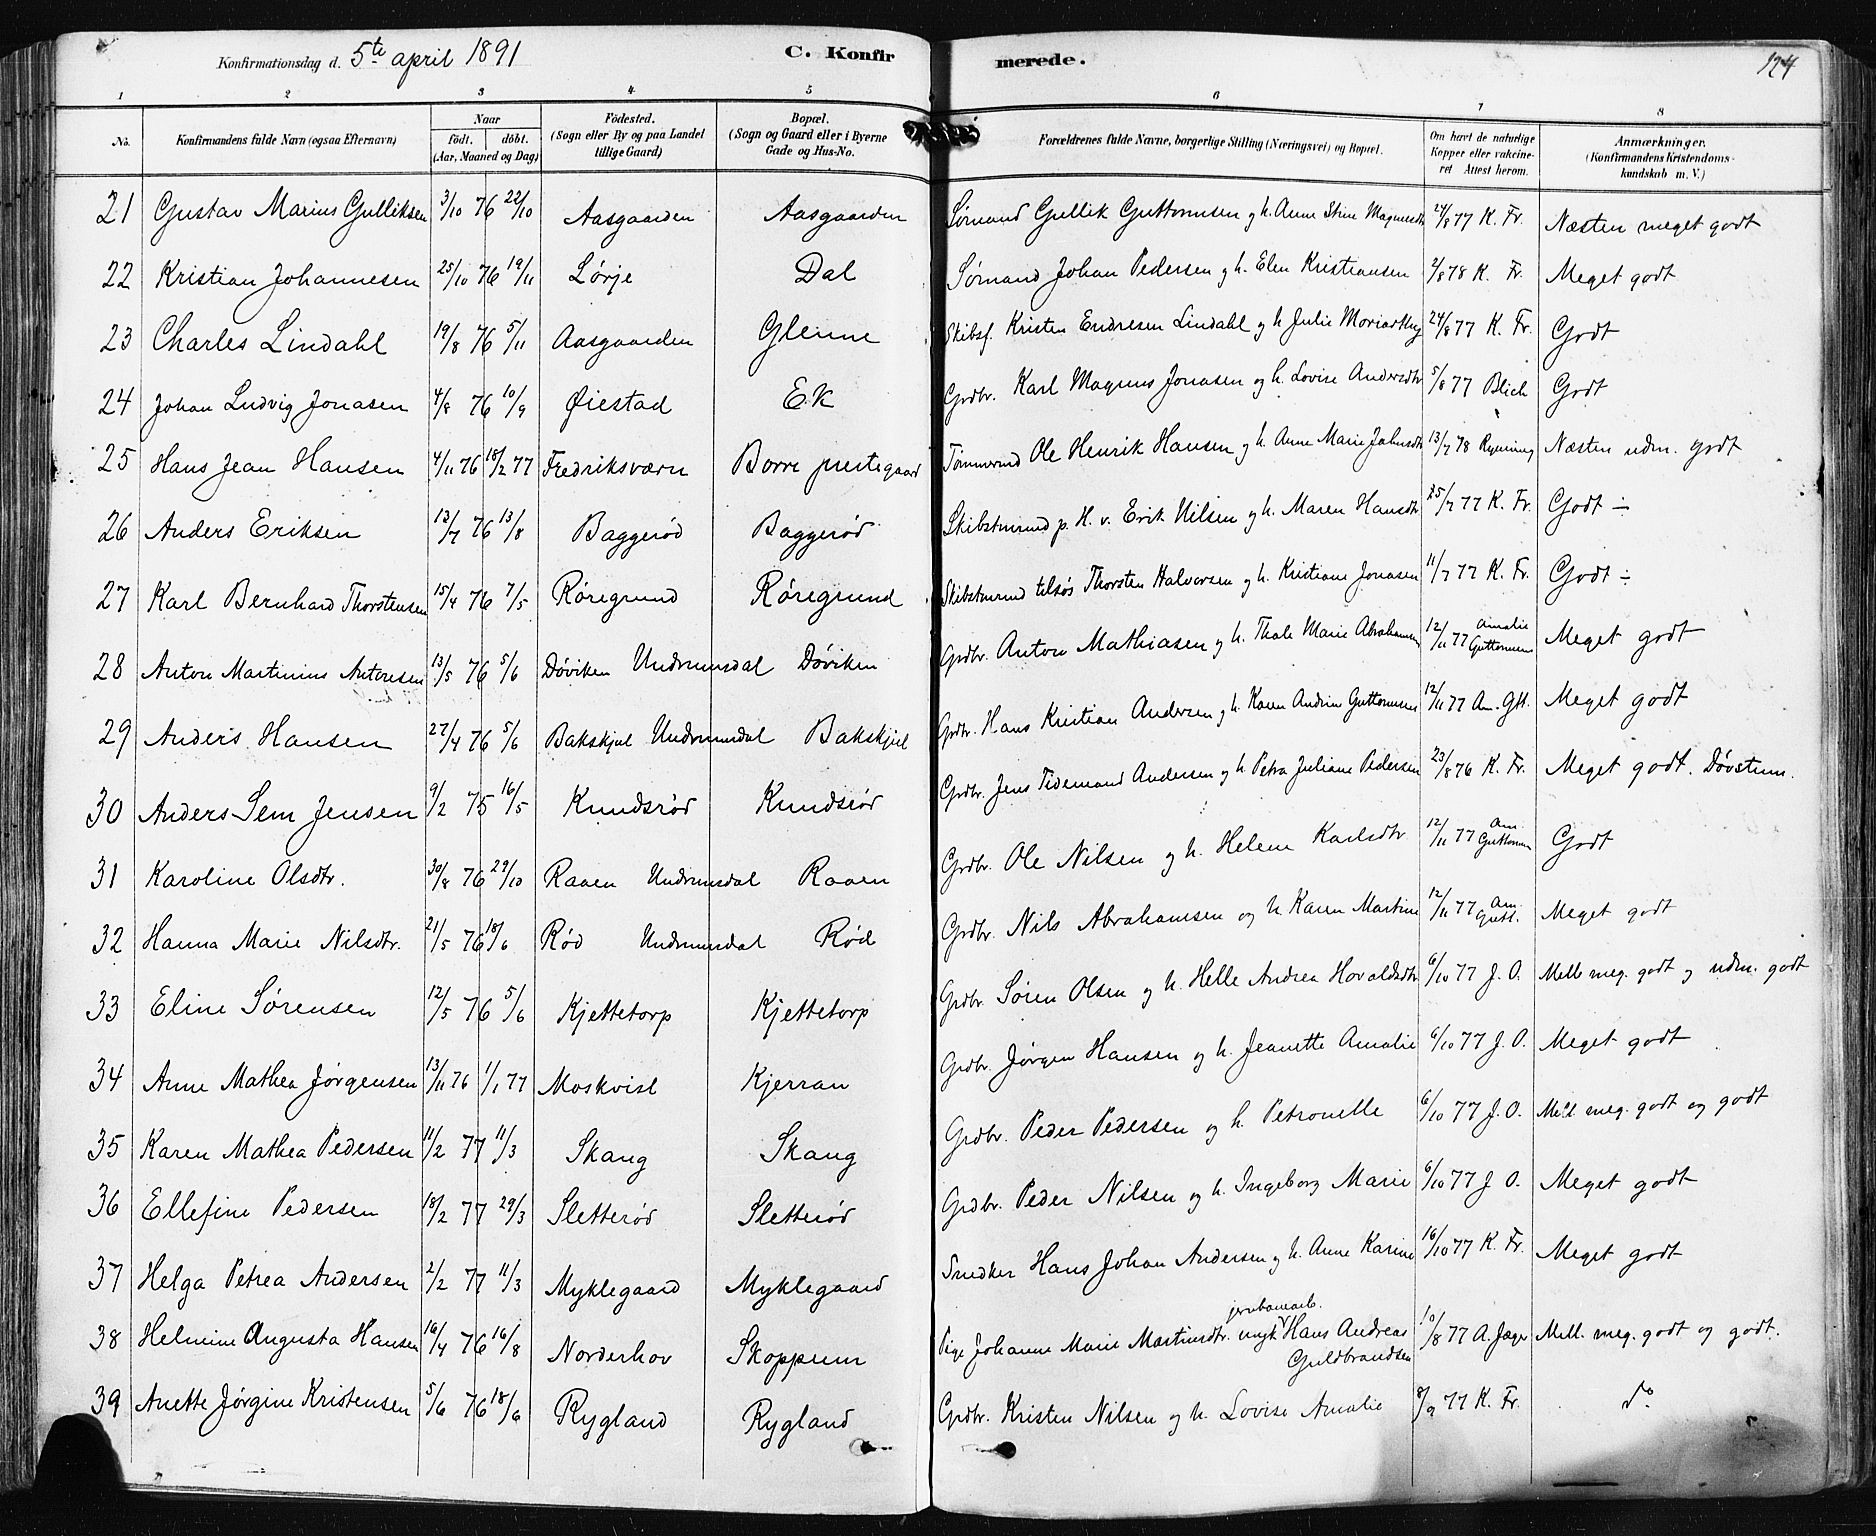 Konfirmationsdag d. 5te april 1891 C. Konfirmerede. 124
1 2 3 4 5 6 7 8
No. Konfirmandens fulde Navn (ogsaa Efternavn) Naar födt. döbt. (Aar, Maaned og Dag) Födested. (Sogn eller By og paa Landet tillige Gaard) Bopæl. (Sogn og Gaard eller i Byerne Gade og Hus-No. Forældrenes fulde Navne, borgerlige Stilling (Næringsvei) og Bopæl. Om havt de naturlige Kopper eller vakcineret Attest herom. Anmærkninger. (Konfirmandens Kristendomskundskab m. V.)
21 Gustav Marius Gulliksen 3/10 76 22/10 Aasgaarden Aasgaarden Sømand Gullik Guttormsen og h. Anne Stine Magnusdtr 24/8 77 K. Fr. Næsten meget godt
22 Kristian Johannesen 25/10 76 19/11 Lørje Dal Sømand Johan Pedersen og h. Elen Kristiansen 2/8 78 K. Fr. Meget godt
23 Charles Lindahl 19/8 76 5/11 Aasgaarden Glenne Skibsf. Kristen Endresen Lindahl og h Julie 24/8 77 K. Fr. Godt
24 Johan Ludvig Jonasen 4/8 76 10/9 Øiestad Ek Grdbr. Karl Magnus Jonasen og h. Lovise Andersdtr 5/8 77 Blich Godt
25 Hans Jean Hansen 4/11 76 18/2 77 Fredriksværn Borre prestegaard Tømmermd Ole Henrik Hansen og h. Anne Marie Johnsdtr 13/7 78 Rynning Næsten udm. godt
26 Anders Eriksen 13/7 76 13/8 Baggerød Baggerød Skibstmrmd p. H. v. Erik Nilsen og h. Maren Hansdtr 25/7 77 K. Fr. Godt ÷
27 Karl Bernhard Thorstensen 15/4 76 7/5 Røregrund Røregrund Skibstmrmd tilsøs Thorsten Halvorsen og h. Kristiane Jonasen 11/7 77 K. Fr. Godt ÷
28 Anton Martinius Antonsen 13/5 76 5/6 Døviken Undrumsdal Døviken Grdbr. Anton Mathiasen og h. Thale Marie Abrahamsen 12/11 77 Amalie Guttormsen Meget godt
29 Anders Hansen 27/4 76 5/6 Bakskjul Undrumsdal Bakskjul Grdbr. Hans Kristian Andersen og h. Karen Andrine Guttormsen 12/11 77 Am. Gtt. Meget godt
30 Anders Sem Jensen 9/2 75 16/5 Knudsrød Knudsrød Grdbr. Jens Tidemand Andersen og h Petra Juliane Pedersen 23/8 76 K. Fr. Meget godt. Døvstum.
31 Karoline Olsdtr. 30/8 76 29/10 Raaen Undrumsdal Raaen Grdbr. Ole Nilsen og h. Helene Karlsdtr 12/11 77 Am Guttormsen Godt
32 Hanna Marie Nilsdtr. 21/5 76 18/6 Rød Undrumsdal Rød Grdbr. Nils Abrahamsen og h Karen Martine 12/11 77 Am Gutt. Meget godt
33 Eline Sørensen 12/5 76 5/6 Kjettetorp Kjettetorp Grdbr. Søren Olsen og h. Helle Andrea Hovaldsdtr 6/10 77 J. O. Mell meg. godt og udm. godt
34 Anne Mathea Jørgensen 13/11 76 1/1 77 Moskvist Kjerran Grdbr. Jørgen Hansen og h. Jeanette Amalie 6/10 77 J. O. Meget godt
35 Karen Mathea Pedersen 11/2 77 11/3 Skaug Skaug Grdbr. Peder Pedersen og h. Petronelle 6/10 77 J. O. Mell meg. godt og godt
36 Ellefine Pedersen 18/2 77 29/3 Sletterød Sletterød Grdbr. Peder Nilsen og h. Ingeborg Marie 6/10 77 J O. Meget godt
37 Helga Petrea Andersen 2/2 77 11/3 Myklegaard Myklegaard Snedker Hans Johan Andersen og h. Anne Karine 16/10 77 K. Fr. Meget godt
38 Helmine Augusta Hansen 16/4 76 16/8 Norderhov Skoppum Pige Johanne Marie Martinsdtr. ungk jernbanearb. Hans Andreas Guldbrandsen 10/8 77 A. Jæger Mell. meg. godt og godt.
39 Anette Jørgine Kristensen 5/6 76 18/6 Rygland Rygland Grdbr. Kristen Nilsen og h. Lovise Amalie 8/9 77 K. Fr. do